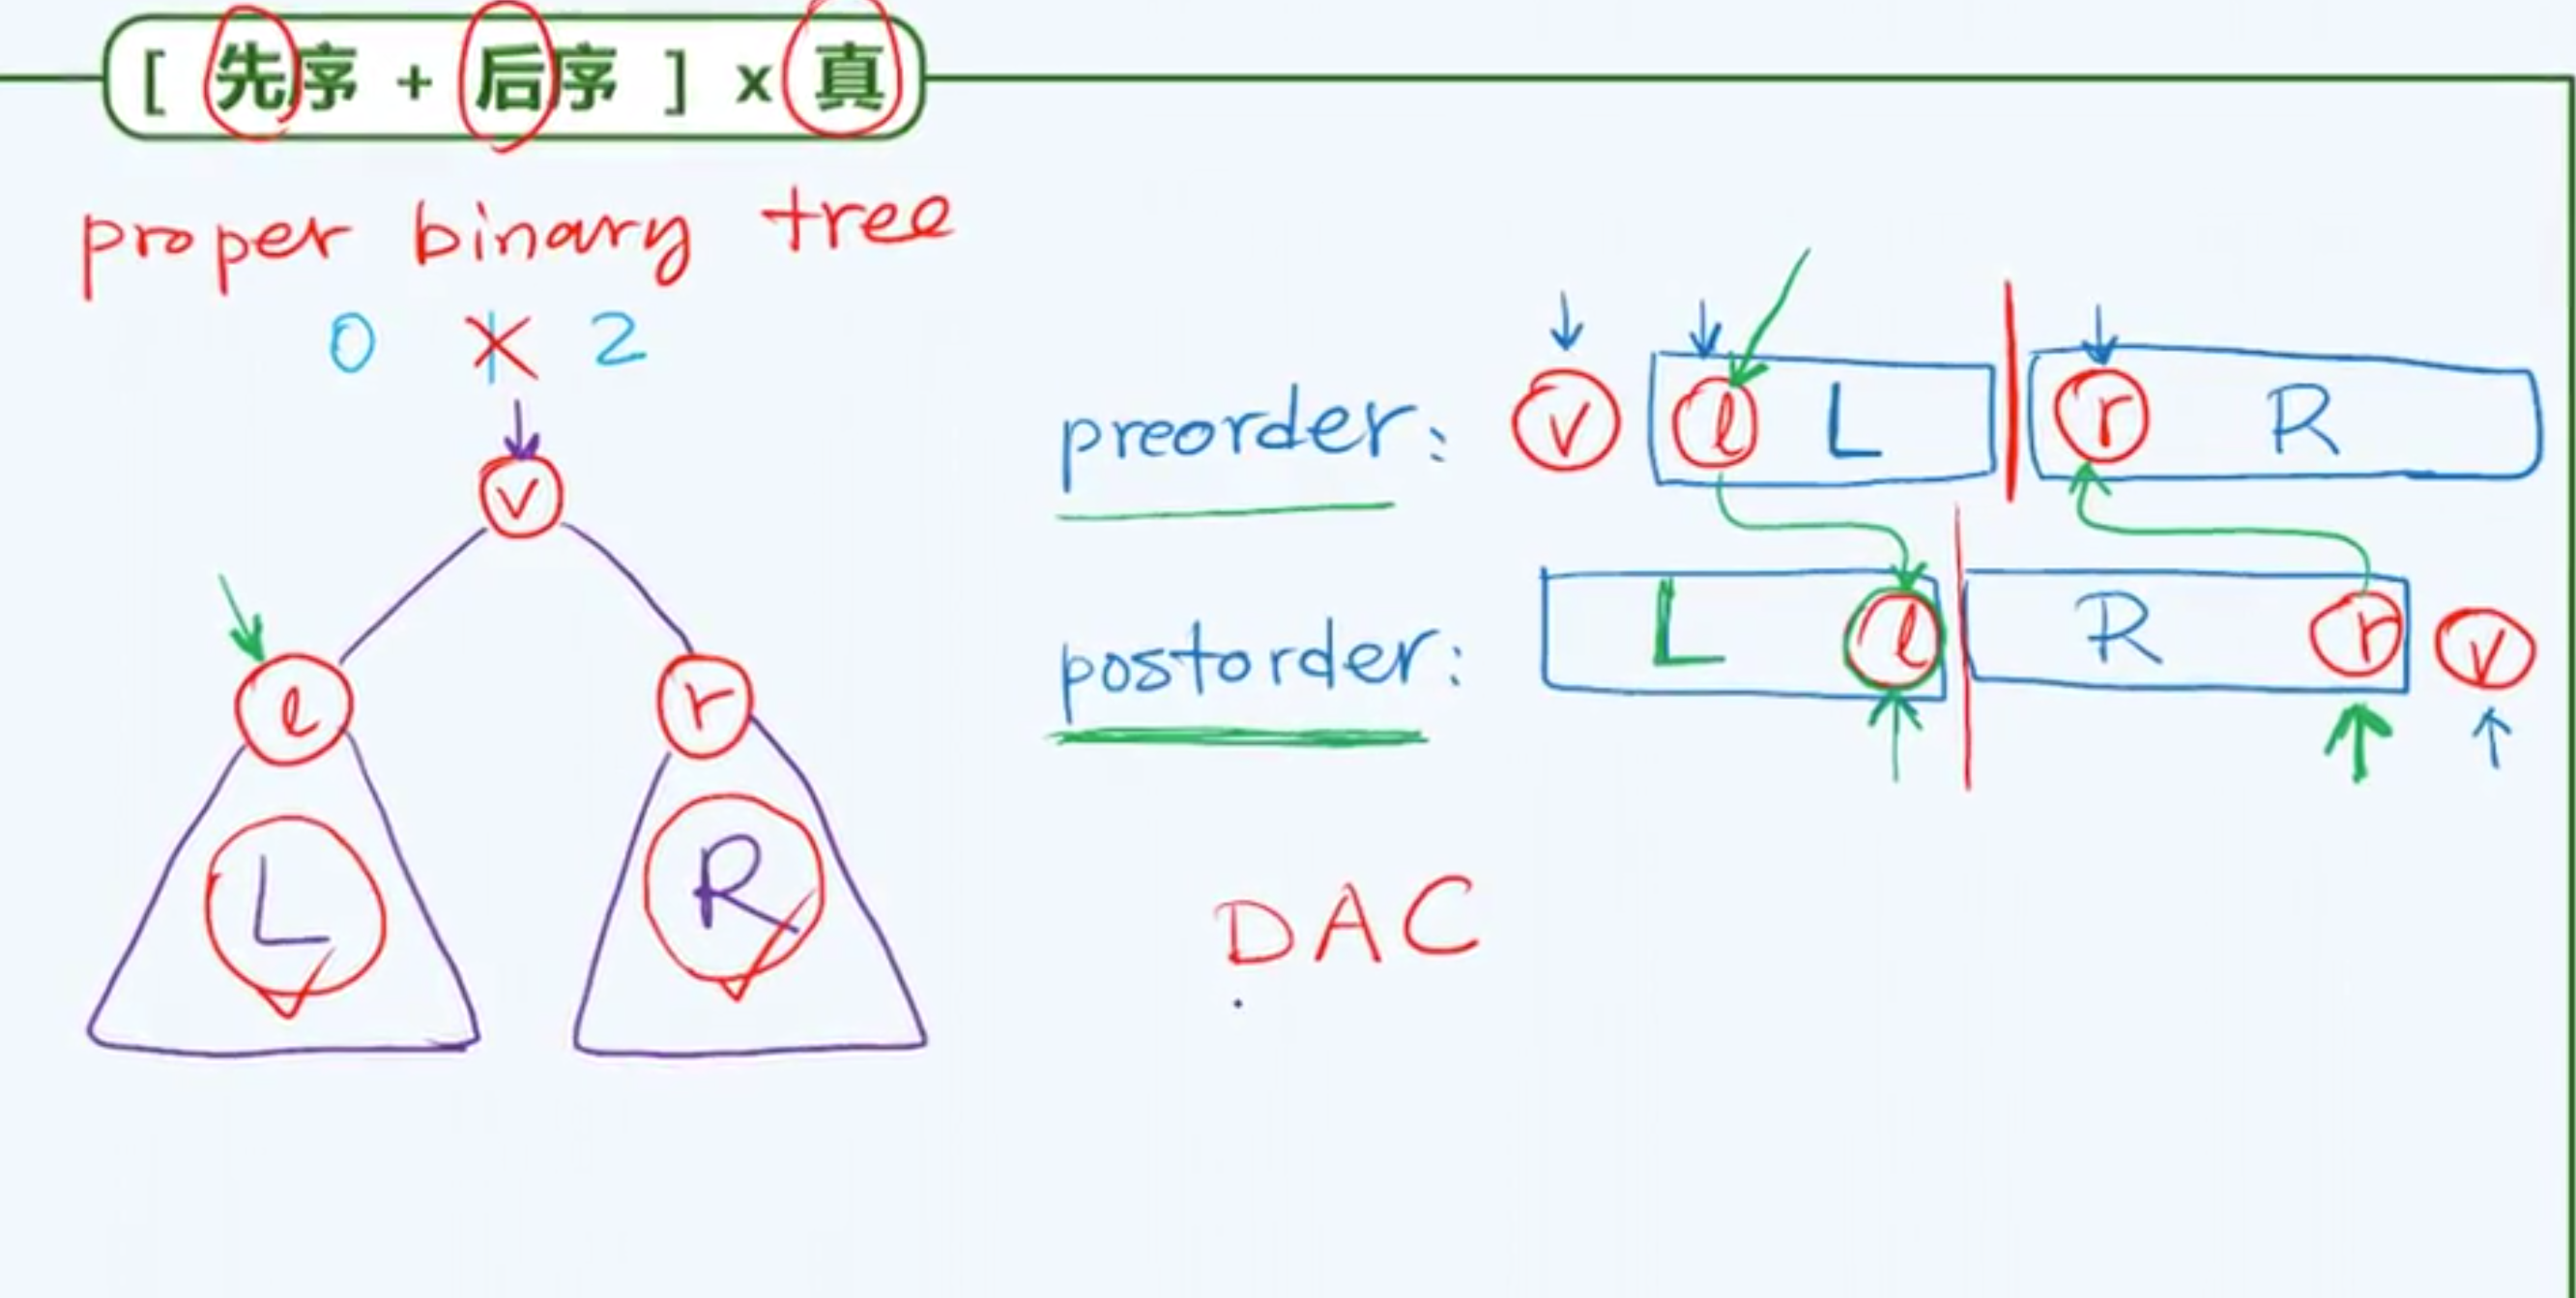 [ 先序 + 后序 ] x 真
proper binary tree
0 1 2
v
l r
L R
preorder: v l L r R
postorder: L l R r v
DAC